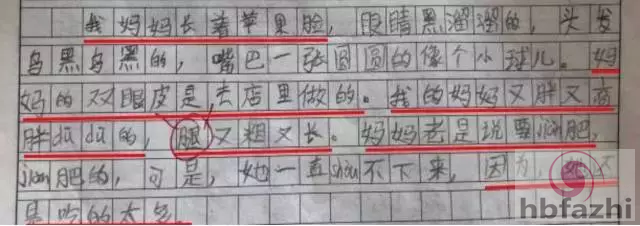 我妈妈长着苹果脸,眼睛黑溜溜的,头发
乌黑乌黑的,嘴巴一张圆圆的像个小球儿。妈
妈的双眼皮是去店里做的。我的妈妈又胖又高
胖dūdū的,腿又粗又长。妈妈老是说要jiǎn肥,
jiǎn肥的,可是,她一直shòu不下来,因为,她
是吃的太多
hbfazhi